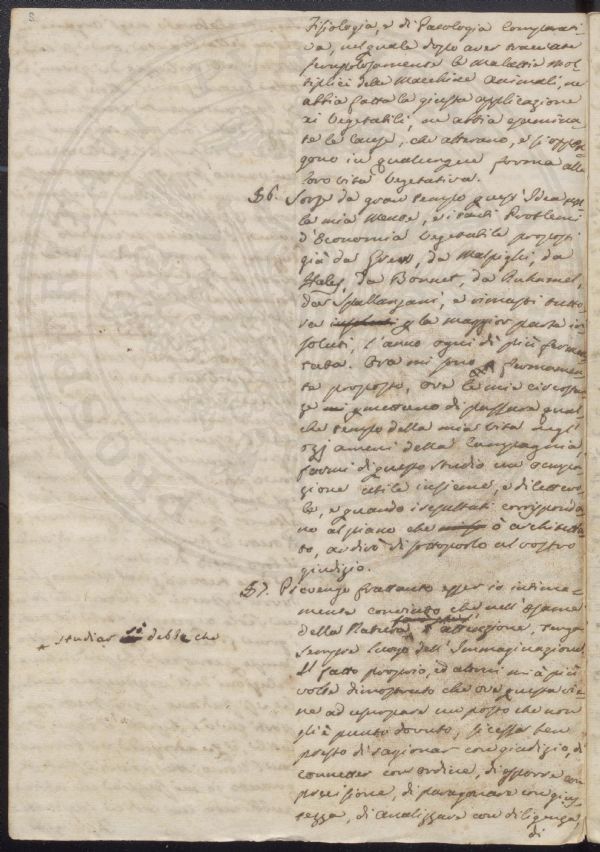 8
Fisiologia, e di Patologia Comparati
va, nel quale dopo aver tracciate
scrupolosamente le Malattie mol
tiplici delle Macchine Animali, ne
abbia fatta la giusta applicazione
ai Vegetabili, ne abbia esamina
te le cause, che alterano, e si oppon
gono in qualunque forma alla
loro vita Vegetativa.
§6. Sorse da gran tempo quest' Idea
la mia Mente, e i tanti Problemi
d'Economia Vegetabile proposti
già da Grew, da Malpighi, da
Hales, da Bonnet, da Duhamel,
da Spallanzani, e rimasti tutto
ra la maggior parte in
soluti, l'anno ogni dì più fermen
tata. Ora mi sono fermamen
te proposto, ove le mie circostan
ze permettano di passare qual
che tempo della mia vita negl'
ozj ameni della Campagna,
farmi di questo studio una occupa
zione utile insieme, e dilettevo
le, e quando i resultati corrisponda
no al piano che ò architetta
to, ardirò di sottoporlo al vostro
giudizio.
§7. Prevengo frattanto esser io intima
mente convinto che nell' Esame
della Natura attenzione, tenga
* studiar si debbe che
sempre luogo dell' Immaginazione.
Il fatto proprio, ed altrui mi à più
volte dimostrato che ove questa vie
ne ad usurpare un posto che non
gli è punto dovuto, si cessa ben
presto di ragionar con giudizio, di
connetter con ordine, di esporre con
precisione, di paragonare con gius
tezza, di analizzare con diligenza,
di